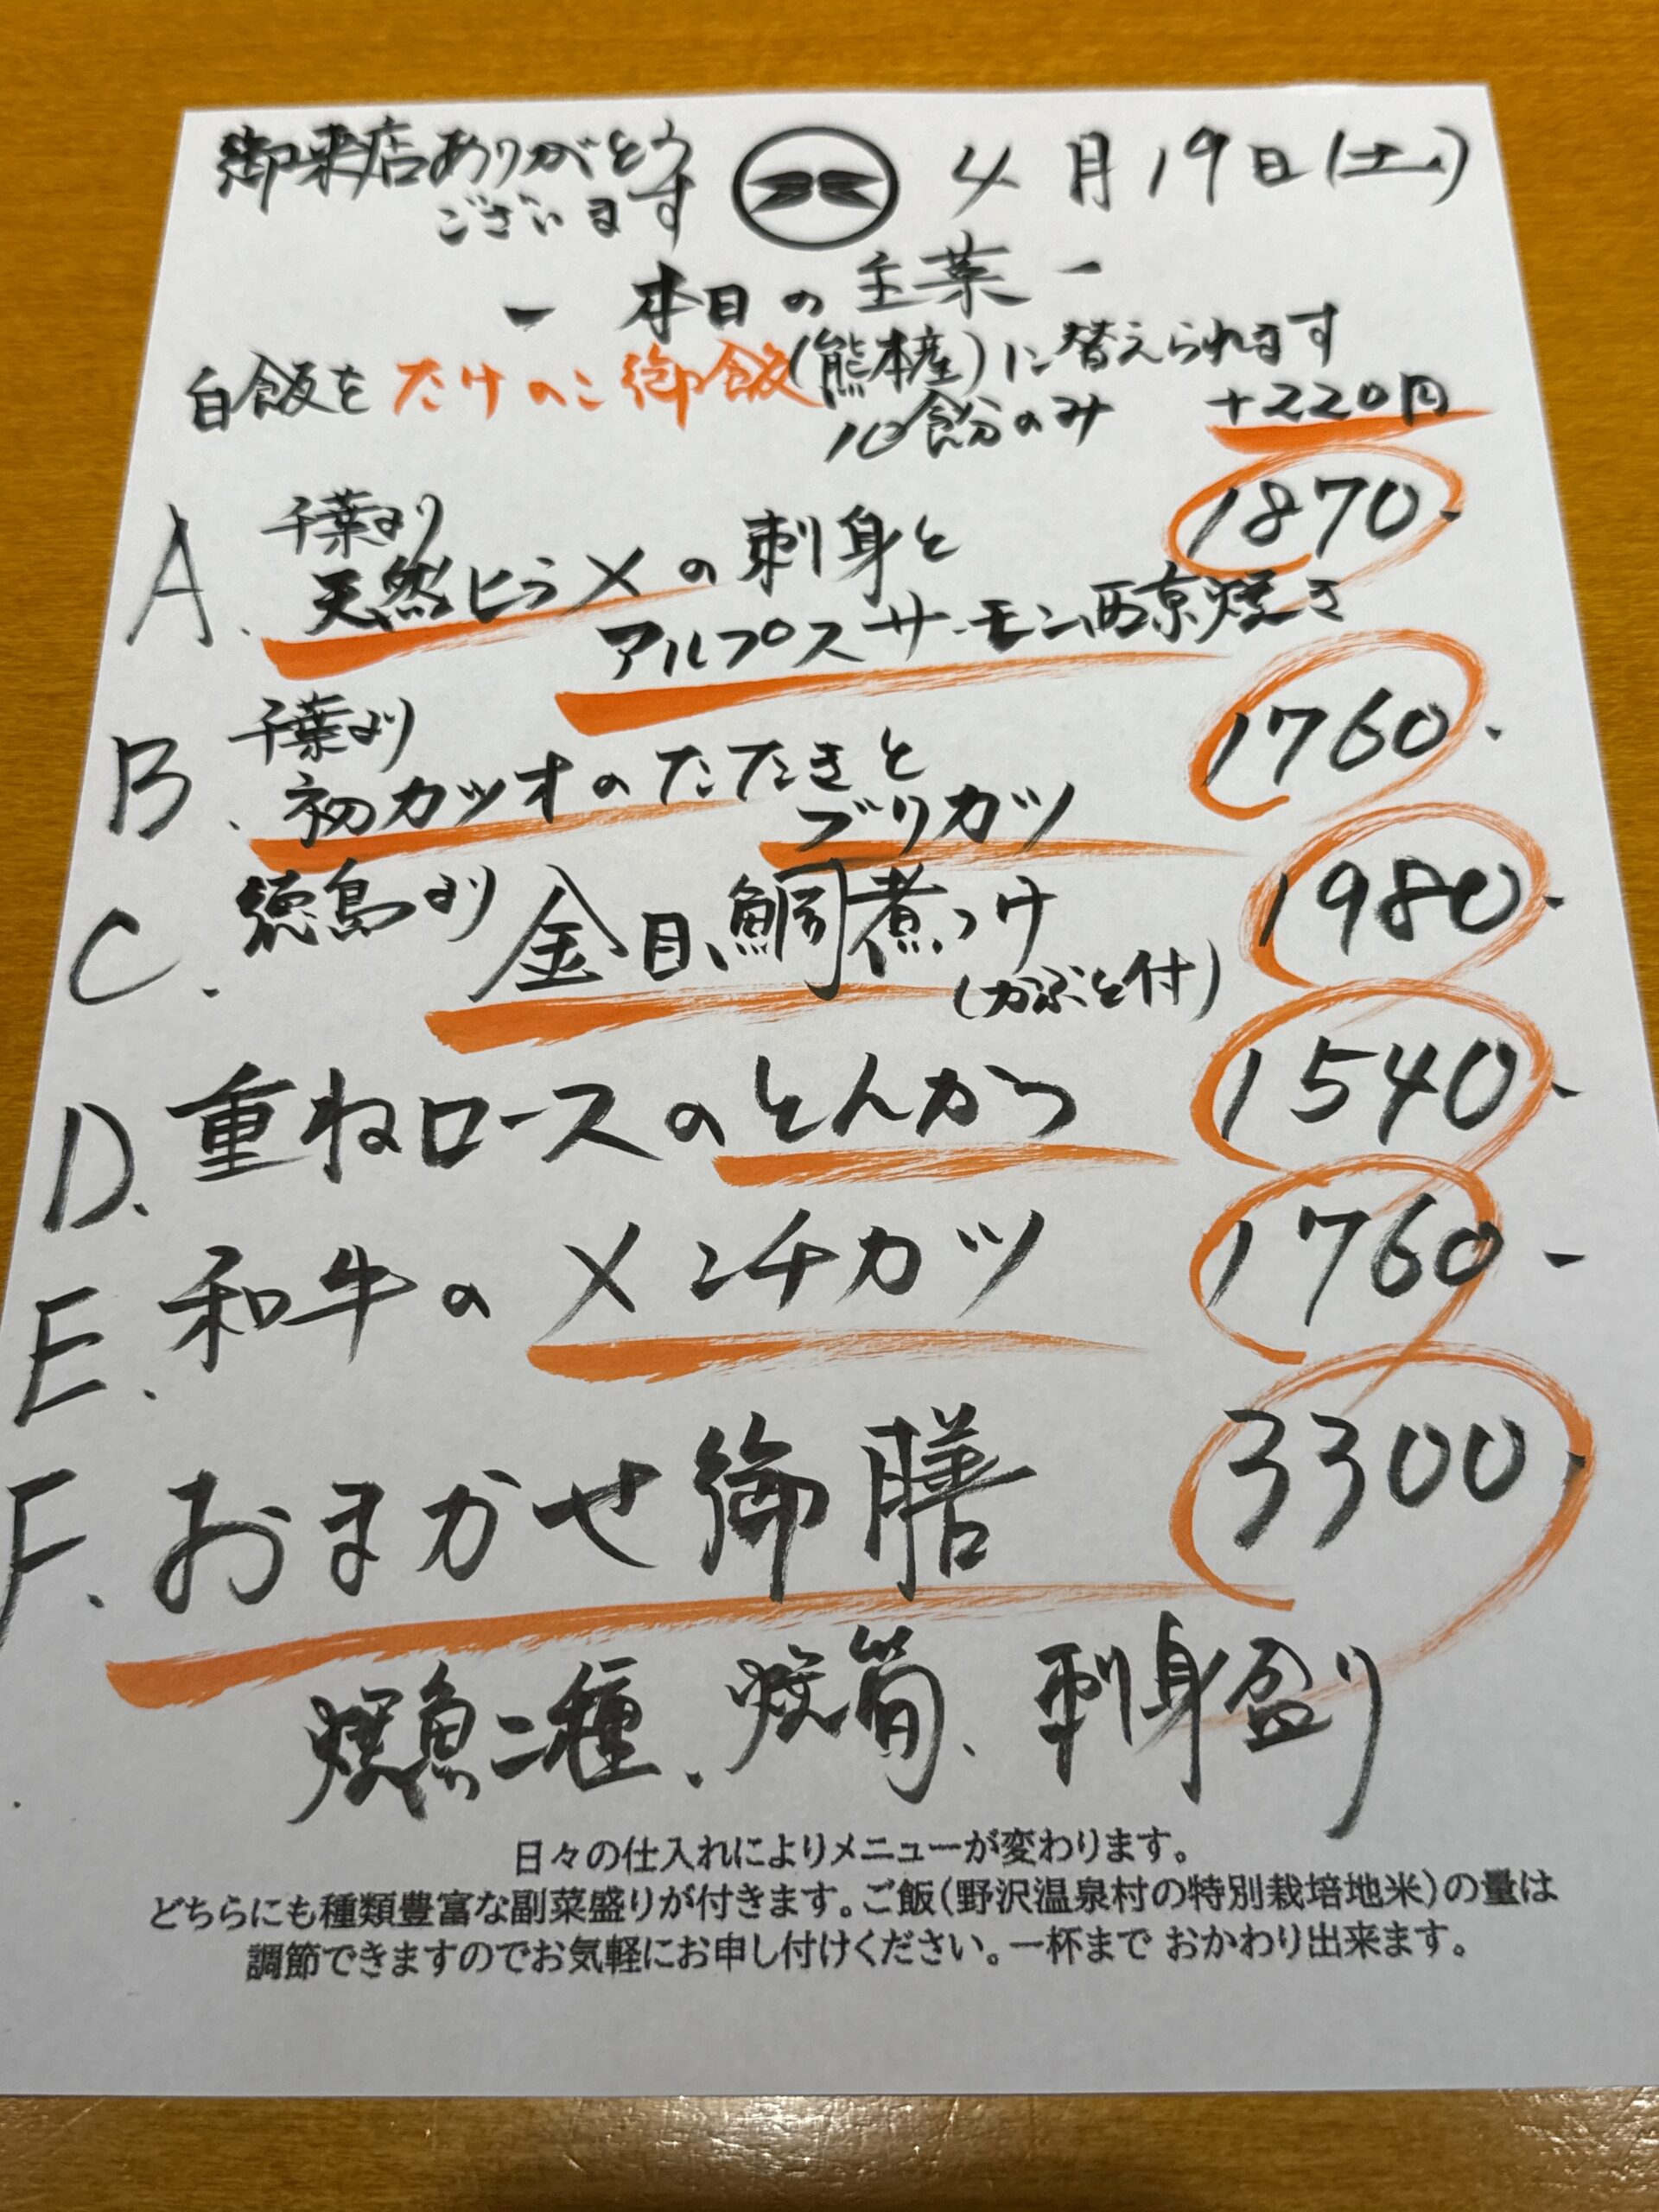 御来店ありがとう
ございます
4月19日(土)
- 本日の主菜 -
白飯をたけのこ御飯(熊本産)に替えられます
10食分のみ +220円
A. 千葉より 1870-
天然ヒラメの刺身と
アルプスサーモン西京焼き
B. 千葉より 1760-
初カツオのたたきと
ブリカツ
C. 徳島より 金目鯛煮つけ 1980-
(かぶと付)
D. 重ねロースのとんかつ 1540-
E. 和牛のメンチカツ 1760-
F. おまかせ御膳 3300-
焼魚二種、焼筍、刺身盛り
日々の仕入れによりメニューが変わります。
どちらにも種類豊富な副菜盛りが付きます。ご飯(野沢温泉村の特別栽培地米)の量は
調節できますのでお気軽にお申し付けください。一杯まで おかわり出来ます。